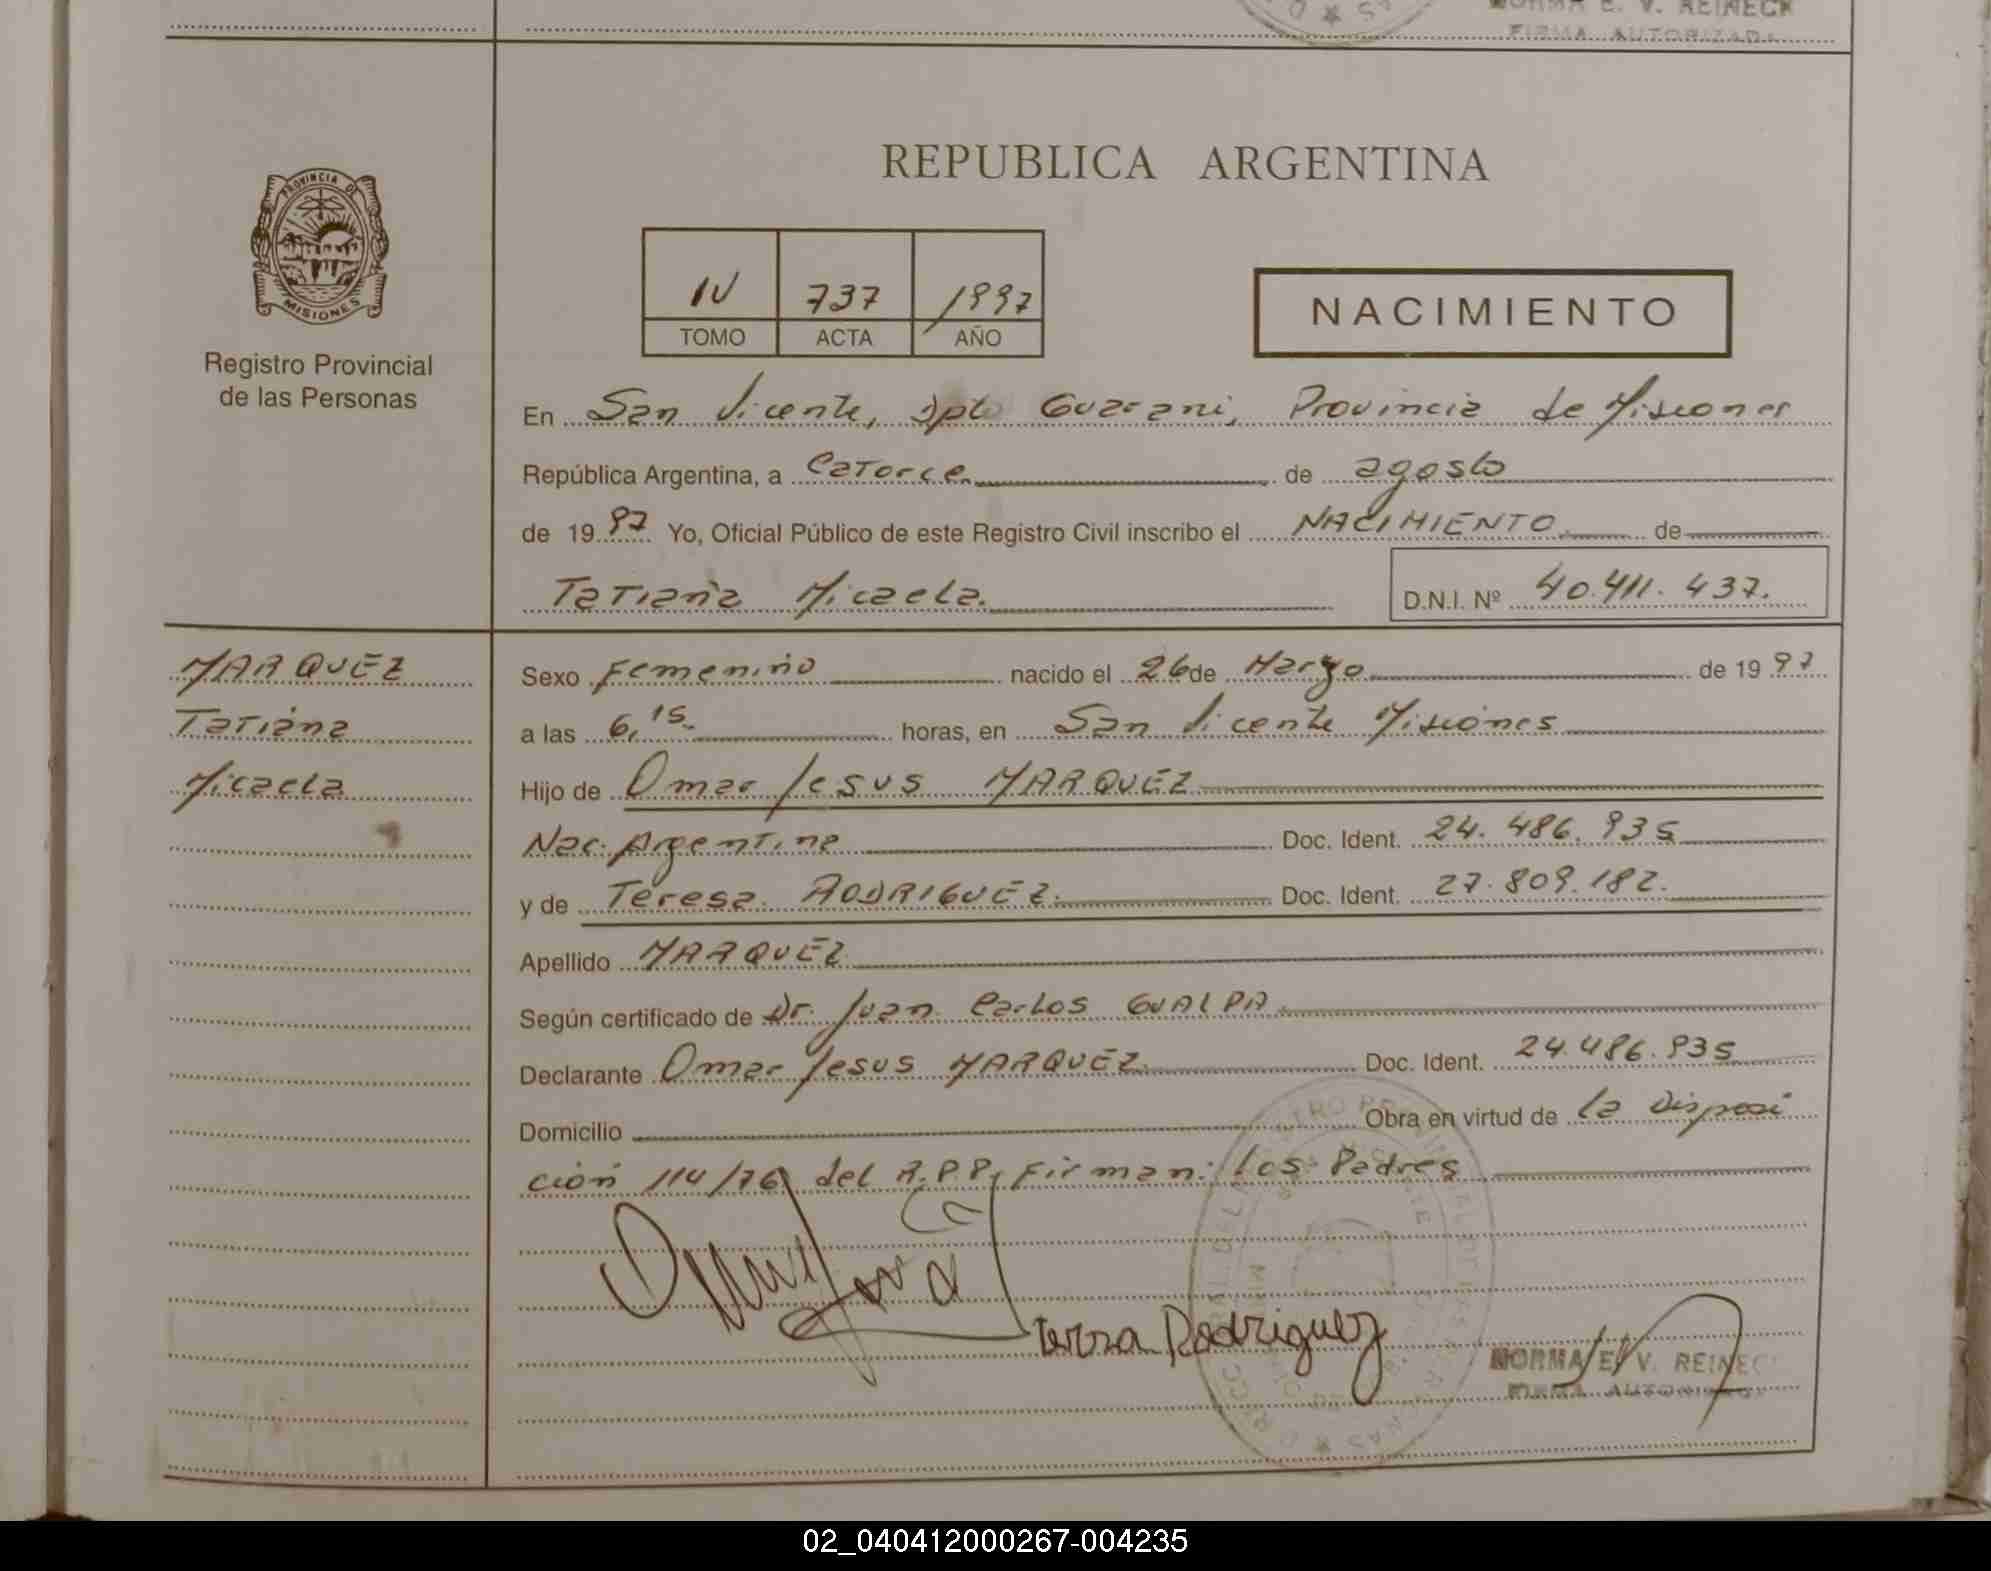 NORMA E. V. REINECK
FIRMA AUTORIZADA
PROVINCIA DE
MISIONES
Registro Provincial
de las Personas
REPUBLICA ARGENTINA
IV 737 1997
TOMO ACTA AÑO
NACIMIENTO
En San Vicente, Dpto Guarani, Provincia de Misiones
República Argentina, a Catorce de agosto
de 1997 Yo, Oficial Público de este Registro Civil inscribo el NACIMIENTO de
Tatiana Micaela. D.N.I. Nº 40.411.437.
MARQUEZ
Tatiana
Micaela
Sexo Femenino nacido el 26 de Marzo de 1997
a las 6,15 horas, en San Vicente Misiones
Hijo de Omar Jesus MARQUEZ
Nac. Argentina Doc. Ident. 24.486.935
y de Teresa RODRIGUEZ. Doc. Ident. 27.809.182.
Apellido MARQUEZ
Según certificado de Dr. Juan Carlos GUALPA.
Declarante Omar Jesus MARQUEZ. Doc. Ident. 24.486.935
Domicilio Obra en virtud de la Disposi
ción 114/76 del R.P.P. Firman: Los Padres
Teresa Rodriguez
NORMA E. V. REINECK
FIRMA AUTORIZADA
02_040412000267-004235